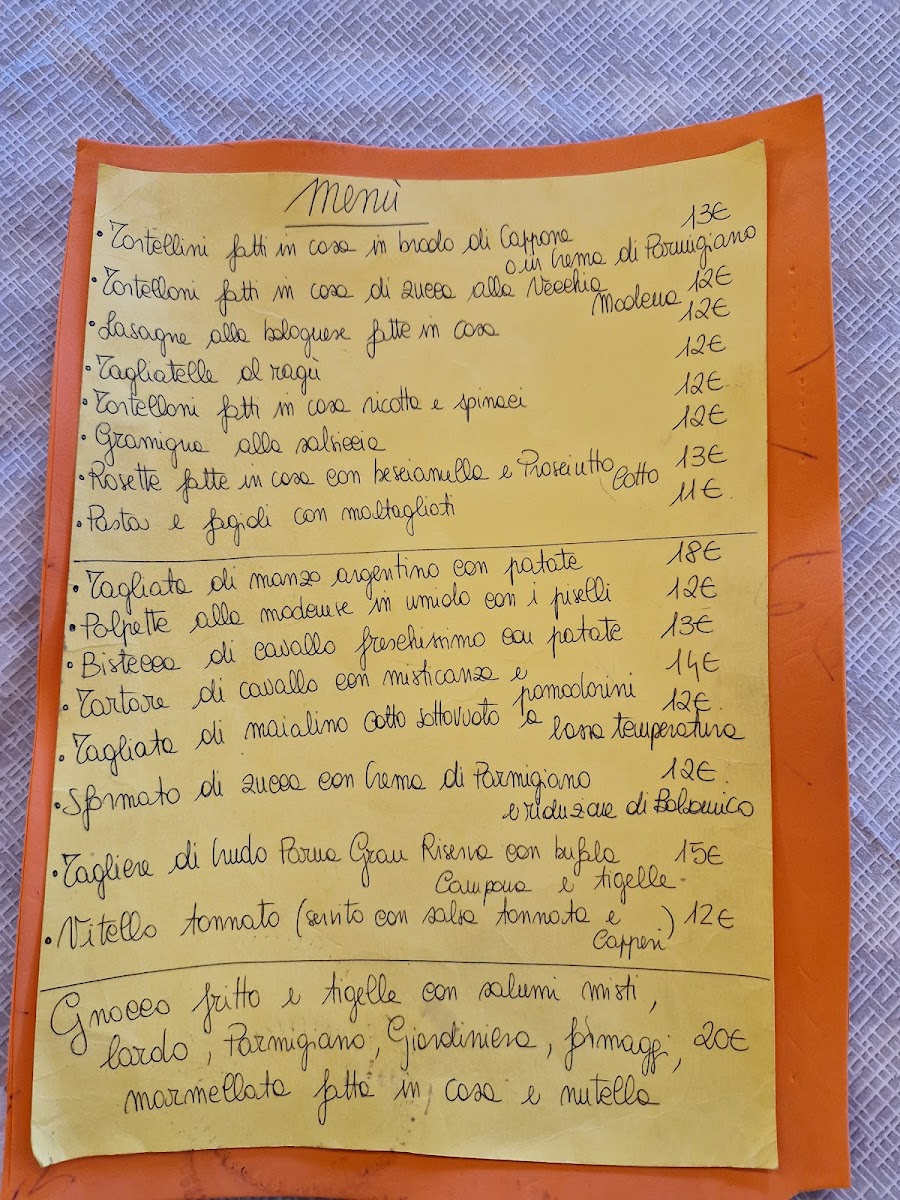 Menù
• Tortellini fatti in casa in brodo di Cappone 13€
o in Crema di Parmigiano
• Tortelloni fatti in casa di zucca alla Vecchia 12€
Modena
• Lasagne alla bolognese fatte in casa 12€
• Tagliatelle al ragù 12€
• Tortelloni fatti in casa ricotta e spinaci 12€
• Gramigna alla salsiccia 12€
• Rosette fatte in casa con besciamella e Prosciutto 13€
Cotto
• Pasta e fagioli con maltagliati 11€
• Tagliata di manzo argentino con patate 18€
• Polpette alla modenese in umido con i piselli 12€
• Bistecca di cavallo freschissimo con patate 13€
• Tartare di cavallo con misticanza e 14€
pomodorini
• Tagliata di maialino cotto sottovuoto a 12€
bassa temperatura
• Sformato di zucca con Crema di Parmigiano 12€
e riduzione di Balsamico
• Tagliere di Crudo Parma Gran Riserva con bufala 15€
Campana e tigelle
• Vitello tonnato (servito con salsa tonnata e 12€
Capperi)
Gnocco fritto e tigelle con salumi misti,
lardo, Parmigiano, Giardiniera, formaggi, 20€
marmellata fatta in casa e nutella